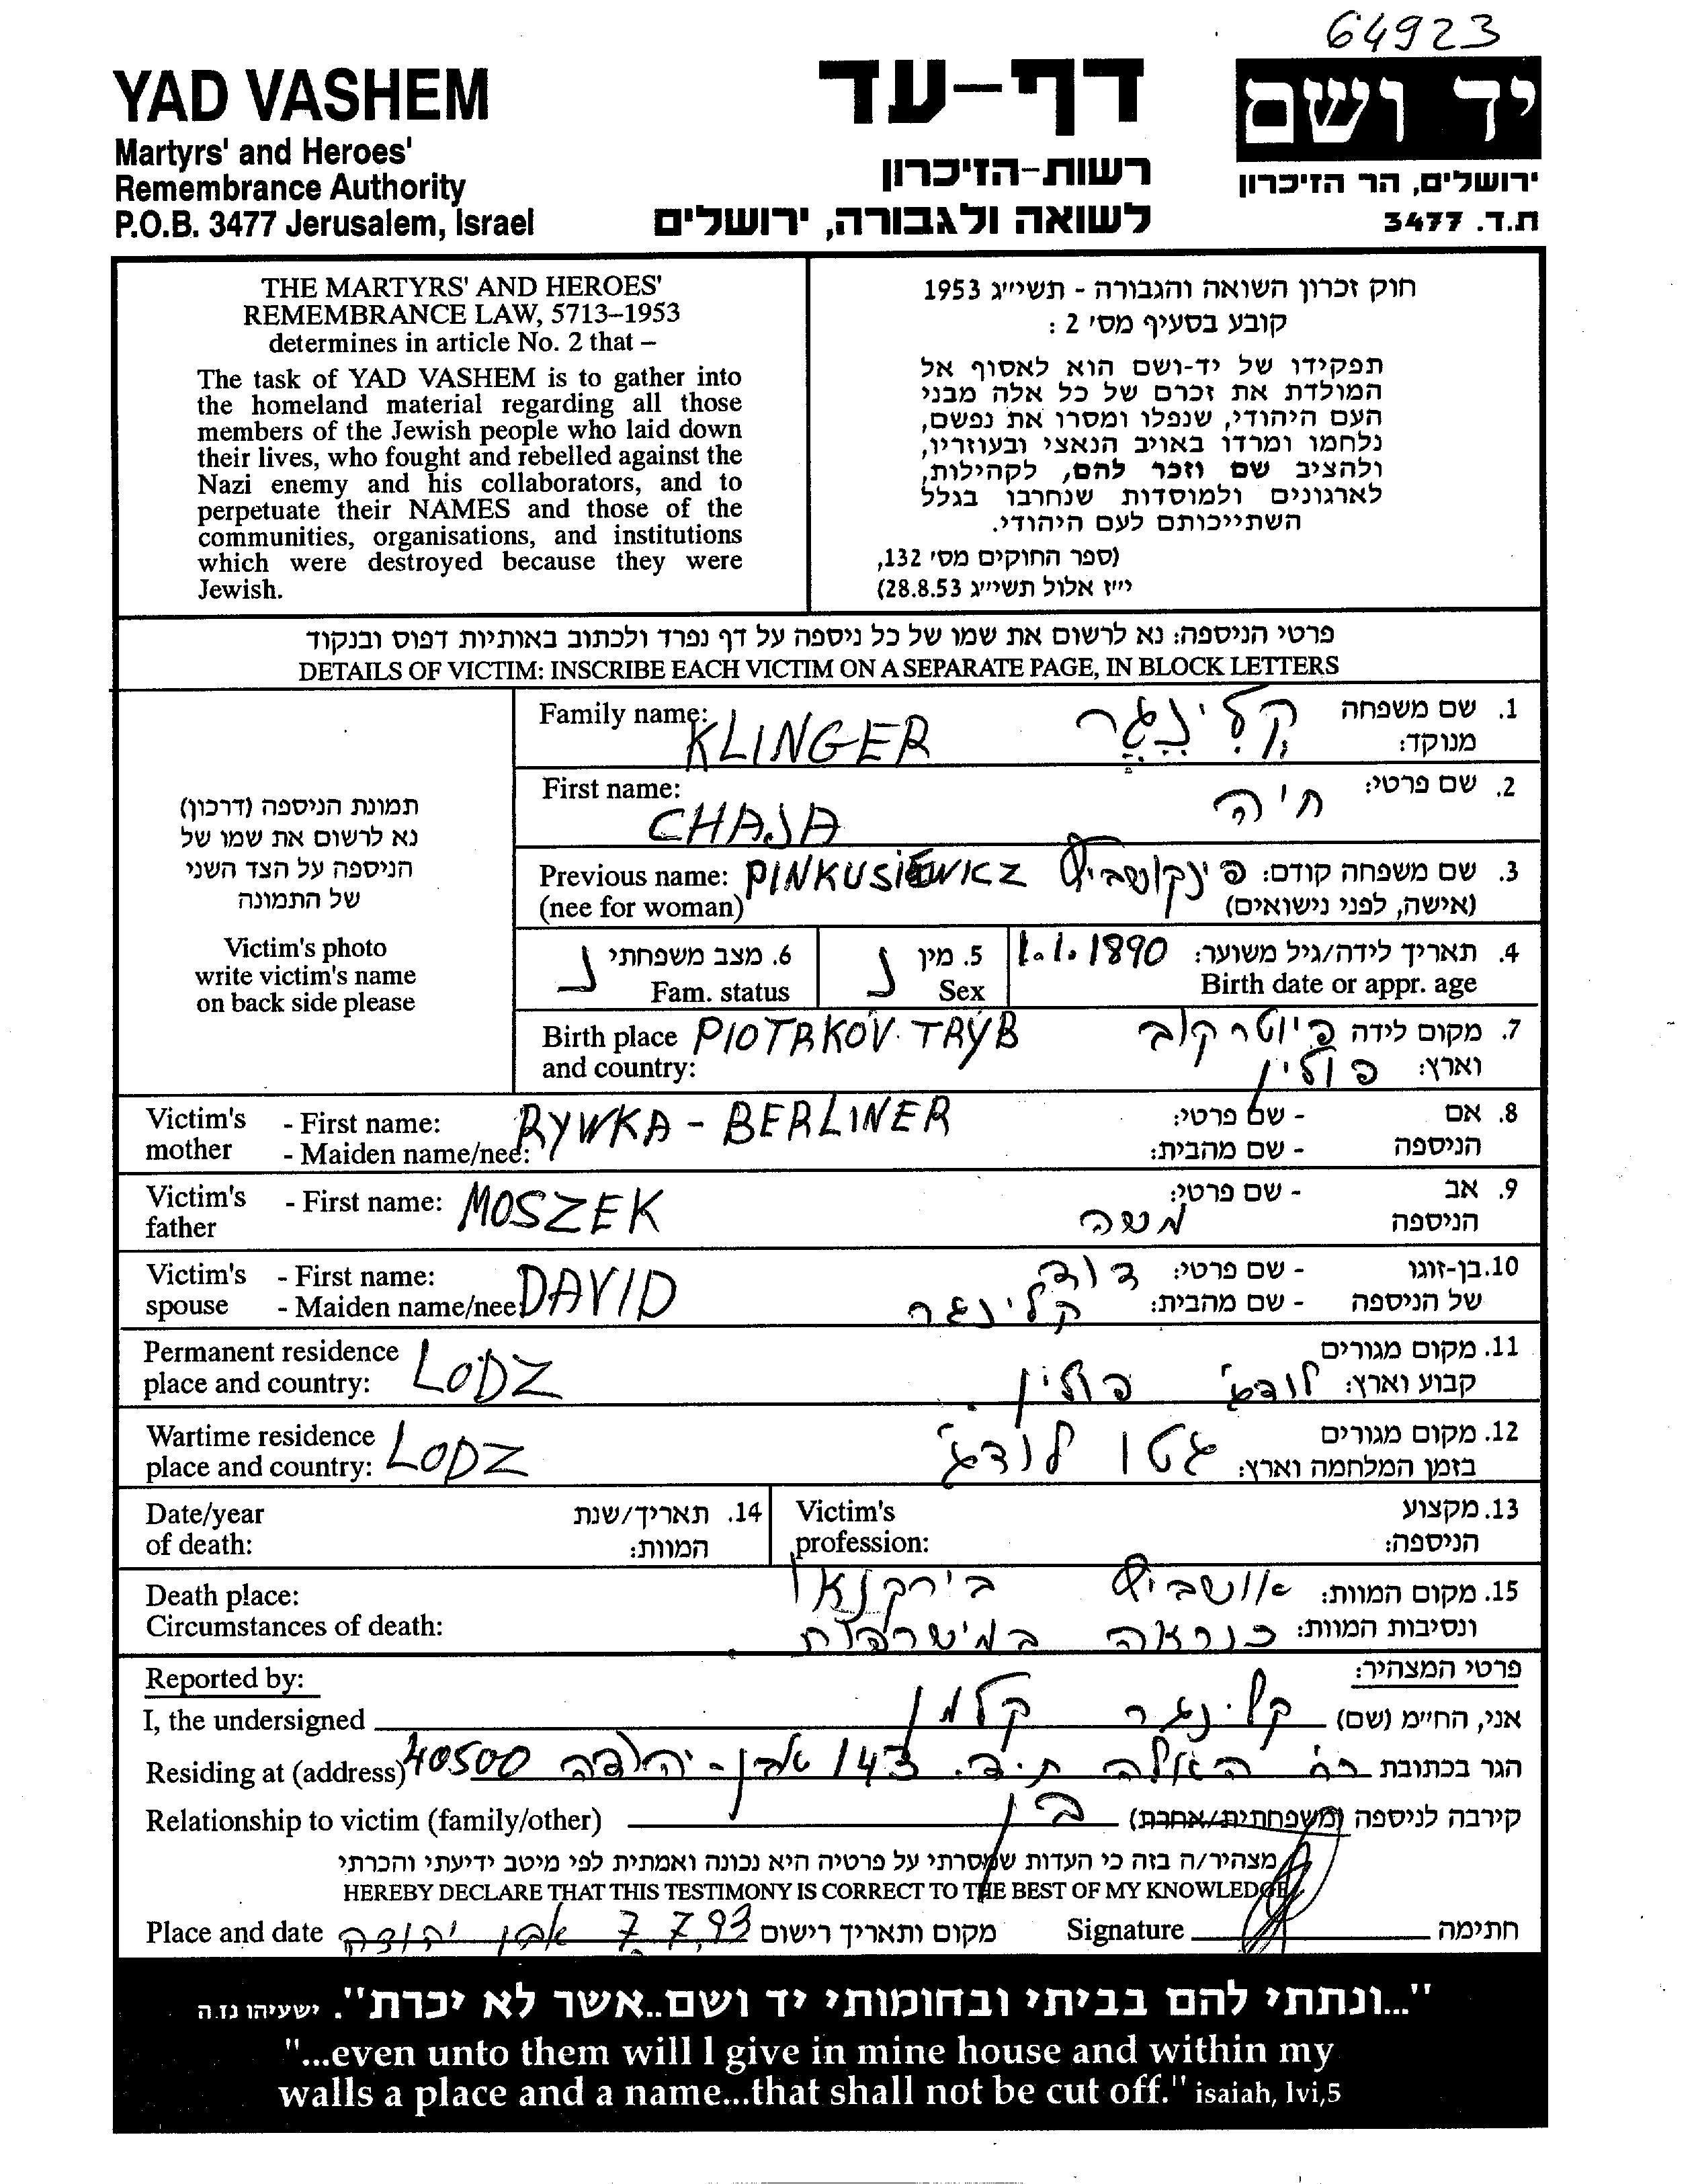 64923
YAD VASHEM
Martyrs' and Heroes'
Remembrance Authority
P.O.B. 3477 Jerusalem, Israel
דף-עד
רשות-הזיכרון
לשואה ולגבורה, ירושלים
יד ושם
ירושלים, הר הזיכרון
ת.ד. 3477
THE MARTYRS' AND HEROES'
REMEMBRANCE LAW, 5713–1953
determines in article No. 2 that –
The task of YAD VASHEM is to gather into
the homeland material regarding all those
members of the Jewish people who laid down
their lives, who fought and rebelled against the
Nazi enemy and his collaborators, and to
perpetuate their NAMES and those of the
communities, organisations, and institutions
which were destroyed because they were
Jewish.
חוק זכרון השואה והגבורה - תשי״ג 1953
קובע בסעיף מס' 2 :
תפקידו של יד-ושם הוא לאסוף אל
המולדת את זכרם של כל אלה מבני
העם היהודי, שנפלו ומסרו את נפשם,
נלחמו ומרדו באויב הנאצי ובעוזריו,
ולהציב שם וזכר להם, לקהילות,
לארגונים ולמוסדות שנחרבו בגלל
השתייכותם לעם היהודי.
(ספר החוקים מס' 132,
י״ז אלול תשי״ג 28.8.53)
פרטי הניספה: נא לרשום את שמו של כל ניספה על דף נפרד ולכתוב באותיות דפוס ובנקוד
DETAILS OF VICTIM: INSCRIBE EACH VICTIM ON A SEPARATE PAGE, IN BLOCK LETTERS
תמונת הניספה (דרכון)
נא לרשום את שמו של
הניספה על הצד השני
של התמונה
Victim's photo
write victim's name
on back side please
Family name: KLINGER קלינגר 1. שם משפחה
מנוקד:
First name: CHAJA חיה 2. שם פרטי:
Previous name: PINKUSIEWICZ 3. שם משפחה קודם:
(nee for woman) (אישה, לפני נישואים)
6. מצב משפחתי נ
Fam. status
5. מין נ
Sex
4. תאריך לידה/גיל משוער: 1.1.1890
Birth date or appr. age
Birth place PIOTRKOV TRYB פיוטרקוב 7. מקום לידה
and country: פולין וארץ:
Victim's mother - First name: RYWKA - BERLINER - שם פרטי: 8. אם
- Maiden name/nee: - שם מהבית: הניספה
Victim's father - First name: MOSZEK משה - שם פרטי: 9. אב
הניספה
Victim's spouse - First name: DAVID דוד - שם פרטי: 10. בן-זוגו
- Maiden name/nee קלינגר - שם מהבית: של הניספה
Permanent residence 11. מקום מגורים
place and country: LODZ לודג' פולין קבוע וארץ:
Wartime residence 12. מקום מגורים
place and country: LODZ גטו לודג' בזמן המלחמה וארץ:
Date/year 14. תאריך/שנת
of death: המוות:
Victim's 13. מקצוע
profession: הניספה:
Death place: אושביץ בירקנאו 15. מקום המוות:
Circumstances of death: כנראה במישרפות ונסיבות המוות:
Reported by: פרטי המצהיר:
I, the undersigned קלינגר קלמן אני, החי״מ (שם)
Residing at (address) רח' האלה ת.ד. 143 אבן-יהודה 40500 הגר בכתובת
Relationship to victim (family/other) בן קירבה לניספה (משפחתית/אחרת)
מצהיר/ה בזה כי העדות שמסרתי על פרטיה היא נכונה ואמתית לפי מיטב ידיעתי והכרתי
HEREBY DECLARE THAT THIS TESTIMONY IS CORRECT TO THE BEST OF MY KNOWLEDGE
Place and date אבן יהודה 7.7.93 מקום ותאריך רישום Signature חתימה
"...ונתתי להם בביתי ובחומותי יד ושם..אשר לא יכרת". ישעיהו נז.ה
"...even unto them will I give in mine house and within my
walls a place and a name...that shall not be cut off." isaiah, lvi,5